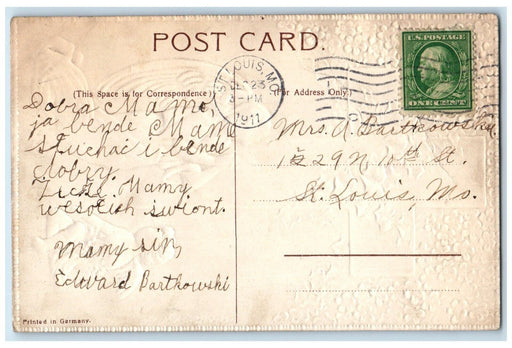 POST CARD.
U.S. POSTAGE
ONE CENT
ST. LOUIS, MO.
DEC 23
3-PM
1911
(This Space is for Correspondence)
(For Address Only)
Dobra Mamo,
ja bende Mame
stuchać i bende
dobry.
Życze Mamy
wesolich swiont.
Mamy sin,
Edward Bartkowski
Mrs. A. Bartkowska
1829 N 10th St.
St. Louis, Mo.
Printed in Germany.